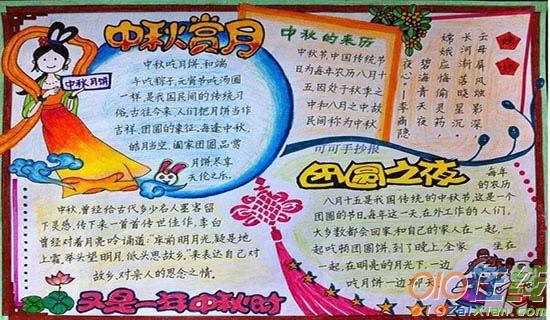 中秋赏月
中秋月饼
中秋吃月饼、和端
午吃粽子、元宵节吃汤圆
一样,是我国民间的传统习
俗。古往今来,人们把月饼当作
吉祥、团圆的象征,每逢中秋,
皓月当空,阖家团圆,品赏
月饼尽享
天伦之乐。
中秋的来历
中秋节,中国传统节
日为每年农历八月十
五,因处于秋季之
中和八月之中,故
民间称为中秋
嫦娥
云母屏风烛影深
长河渐落晓星沉
嫦娥应悔偷灵药
碧海青天夜夜心
—李商隐
可可手抄报
团圆之夜
每年
的农历
八月十五是我国传统的中秋节,这是一个
团圆的节日。每年这一天,在外工作的人们,
大多数都会回家,和自己的家人在一起,一
起吃顿团圆饼,到了晚上,全家 坐在
一起,在明亮的月光下,一边
吃月饼一边聊天
中秋,曾经给古代多少名人墨客留
下灵感,传下来一首首传世佳作。李白
曾经对着月亮吟诵道:“床前明月光,疑是地
上霜,举头望明月,低头思故乡。”来表达自己对
故乡、对亲人的思念之情。
又是一年中秋时